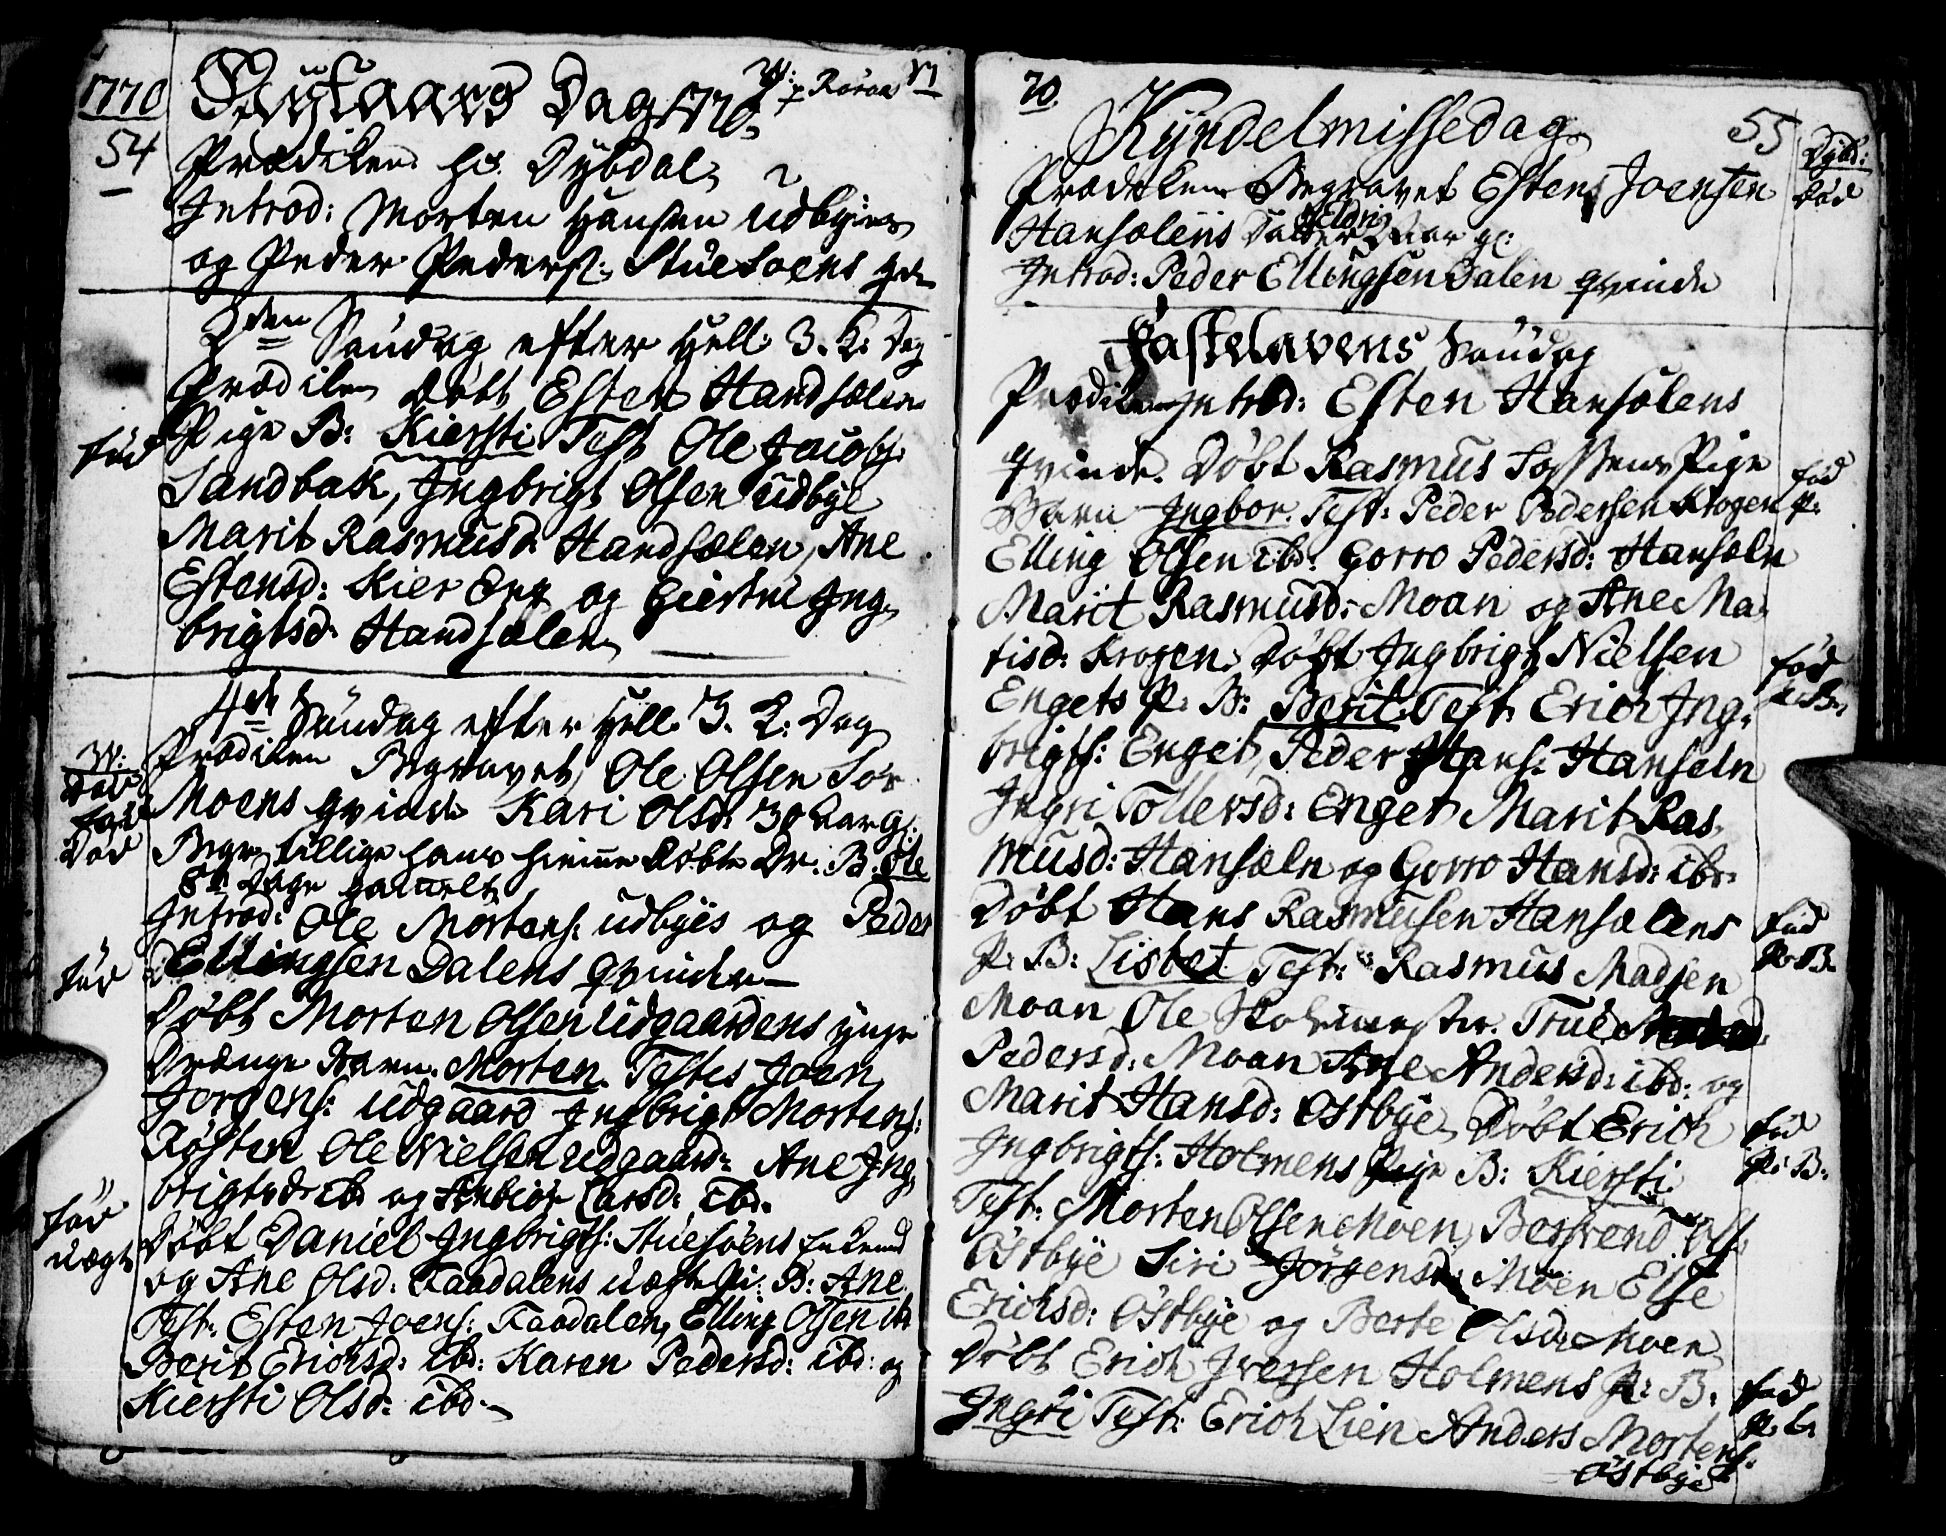 1770
54
Nytaars Dag 1770
W: p Røraas 17
Prædiken hr. Dybdal
Introd: Morten Hansen Udbyes
og Peder Peders: Stuesoens qv
2den Søndag efter Hell: 3. K: Dag
Prædiken Døbt Esten Handsælens
Pige B: Kiersti Test Ole Jacobs:
Sandbak, Ingbrigt Olsen Udbye
Marit Rasmusd: Handsælen, Ane
Estensd: Kier Eng og Giertru Ing
brigtsd: Handsælen
fød
4de Søndag efter Hell. 3. K: Dag
Prædiken Begravet Ole Olsen Sør
Moens qvinde Kari Olsd: 30 aar gl:
Begr: tillige hans hiemme døbte Dr. B. Ole
8te Dage gamelt
Introd: Ole Mortens: udbyes og Peder
Ellingsen Dalens qvinder
Døbt Morten Olsen Udgaardens yngr
Drænge Barn. Morten. Testes Joen
Jørgens: udgaard Ingbrigt Mortens:
Røsten Ole Nielsen udgaard: Ane Ing
brigtsd: ibd og Anbiør Larsd: ibd.
Døbt Daniel Ingbrigts: Stuesøens
og Ane Olsd: Taadalens uægte Pi: B: Ane
Test: Esten Joens: Taadalen, Elling Olsen ib
Berit Erichsd: ibd: Karen Pedersd: ibd: og
Kiersti Olsd: ibd.
W:
Død
fød
Død
fød
fød
uægt
70.
55
Kyndelmissedag
Dybd:
Død
Prædiken Begravet Esten Joensen
Hansælens Datter Eldri aar gl:
Introd: Peder Ellingsen Dalen qvinde
Fastelavens Søndag
Prædiken Introd: Esten Hansælens
qvinde. Døbt Rasmus Pige
Barn Ingbor. Test: Peder Pedersen Krogen
Elling Olsen ibd: Gorro Pedersd: Hansæln
Marit Rasmusd: Moan og Ane Ma
tisd: Krogen. Døbt Ingbrigt Nielsen
Engets P. B: Berit. Test: Erich Ing
brigts: Enget, Peder Hans: Hanseln
Ingri Tollersd: Enget Marit Ras
musd: Hansæln og Gorro Hansd: ibd.
Døbt Hans Rasmusen Hansælens
P: B: Lisbet Test: Rasmus Madsen
Moan Ole Skolemester. True
Pedersd: Moan Ane Andersd: ibd: og
Marit Hansd: Østbye, Døbt Erich
Ingbrigts: Holmens Pige B: Kiersti
Test: Morten Olsen Moen, Bersvend Ols:
Østbye Siri Jørgensd: Moen Else
Erichsd: Østbye og Berte Olsd: Moen
Døbt Erich Iversen Holmens P: B:
Ingri Test: Erich Lien Anders Mortens:
Østbye
fød
P:
fød
P: B:
fød
P: B:
fød
P: B:
fød
P: B: